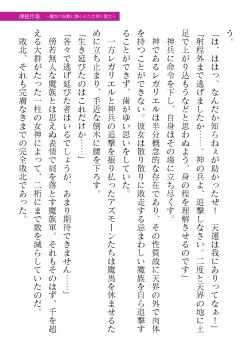 神核汚染 ～魔悦の胎動に囚らわれた女神と聖女～
う。
「は、ははっ、なんだか知らねぇが助かったぜ！　天運は我にありってなぁ！」
「射程外まで逃げましたか……。神の兵よ、追撃しなさい。二度と天界の地に土
足で上がり込もうなどと思わぬよう、身の程を理解させるのです」
神兵に命令を下し、自身はその場に立ち尽くす。
神であるレガリエルは半分概念的な存在であり、その性質故に天界の外で肉体
を持つことができない。彼女は散り散りに敗走する忌まわしい魔族を自ら追撃す
ることができず、歯がゆい思いをしていた。
一方レガリエルと神兵の追撃を振り払ったアズモーンたちは魔馬を休ませるた
めに立ち止まり、手近な倒木に腰を下ろす。
「生き延びたのはこれだけか……」
「各々で逃げ延びた者はいるでしょうが、あまり期待できません……」
傍若無人な魔族とは思えぬ表情で肩を落とす魔族軍。それもそのはず、千を超
える大群がたった一柱の女神によって、二桁にまで数を減らしていたのだ。
敗北、それも完膚なきまでの完全敗北であった。